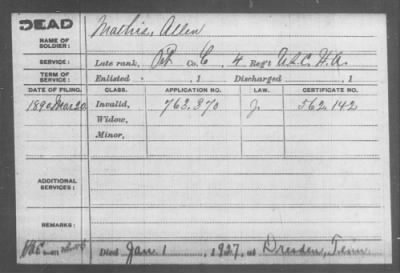 DEAD
NAME OF SOLDIER: Mathis, Allen
SERVICE: Late rank, Pvt Co. C, 4 Reg't U.S.C. H.A.
TERM OF SERVICE: Enlisted , 1 Discharged , 1
DATE OF FILING. CLASS. APPLICATION NO. LAW. CERTIFICATE NO.
1890 Mar 20 Invalid, 763,370 J. 562,142
Widow,
Minor,
ADDITIONAL SERVICES:
REMARKS:
Died Jan 1, 1927, at Dresden, Tenn.